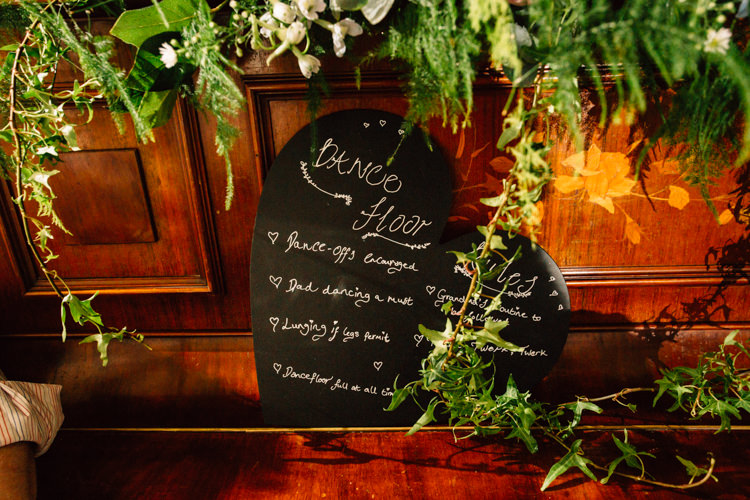 DANCE
Floor
Dance-offs encouraged
Dad dancing a must
Lunging if legs permit
Dancefloor full at all tim
routine to
be followed
werk